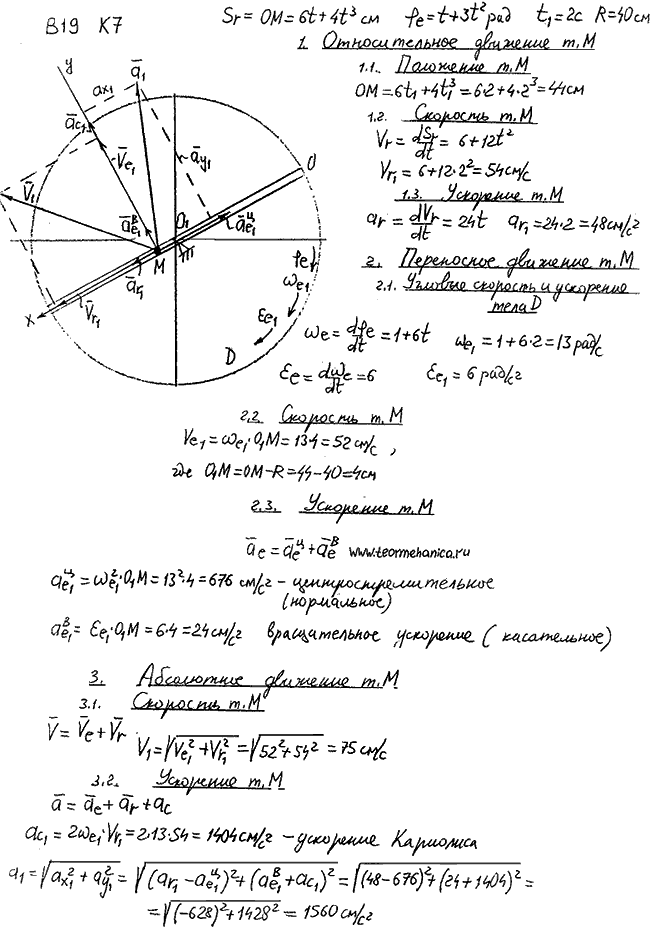 B19 K7
Sr = OM = 6t + 4t³ см φe = t + 3t² рад t₁ = 2с R = 40 см
1. Относительное движение т. М
1.1. Положение т. М
OM = 6t₁ + 4t₁³ = 6·2 + 4·2³ = 44 см
1.2. Скорость т. М
Vr = dSr/dt = 6 + 12t²
Vr₁ = 6 + 12·2² = 54 см/с
1.3. Ускорение т. М
ar = dVr/dt = 24t ar₁ = 24·2 = 48 см/с²
2. Переносное движение т. М
2.1. Угловые скорость и ускорение
тела D
ωe = dφe/dt = 1 + 6t ωe₁ = 1 + 6·2 = 13 рад/с
εe = dωe/dt = 6 εe₁ = 6 рад/с²
y
ax₁
ā₁
āc₁
V̄e₁
āy₁
V̄₁
O
āᴮe₁
O₁
āᶣe₁
M
ār₁
φe
ωe₁
x
V̄r₁
εe₁
D
2.2. Скорость т. М
Ve₁ = ωe₁·O₁M = 13·4 = 52 см/с,
где O₁M = OM − R = 44 − 40 = 4 см
2.3. Ускорение т. М
āe = āeᶣ + āeᴮ www.teormehanica.ru
aᶣe₁ = ωe₁²·O₁M = 13²·4 = 676 см/с² − центростремительное
(нормальное)
aᴮe₁ = εe₁·O₁M = 6·4 = 24 см/с² вращательное ускорение (касательное)
3. Абсолютное движение т. М
3.1. Скорость т. М
V̄ = V̄e + V̄r V₁ = √(Ve₁² + Vr₁²) = √(52² + 54²) = 75 см/с
3.2. Ускорение т. М
ā = āe + ār + ac
ac₁ = 2ωe₁·Vr₁ = 2·13·54 = 1404 см/с² − ускорение Кариолиса
a₁ = √(ax₁² + ay₁²) = √((ar₁ − aᶣe₁)² + (aᴮe₁ + ac₁)²) = √((48 − 676)² + (24 + 1404)²) =
= √((−628)² + 1428²) = 1560 см/с²